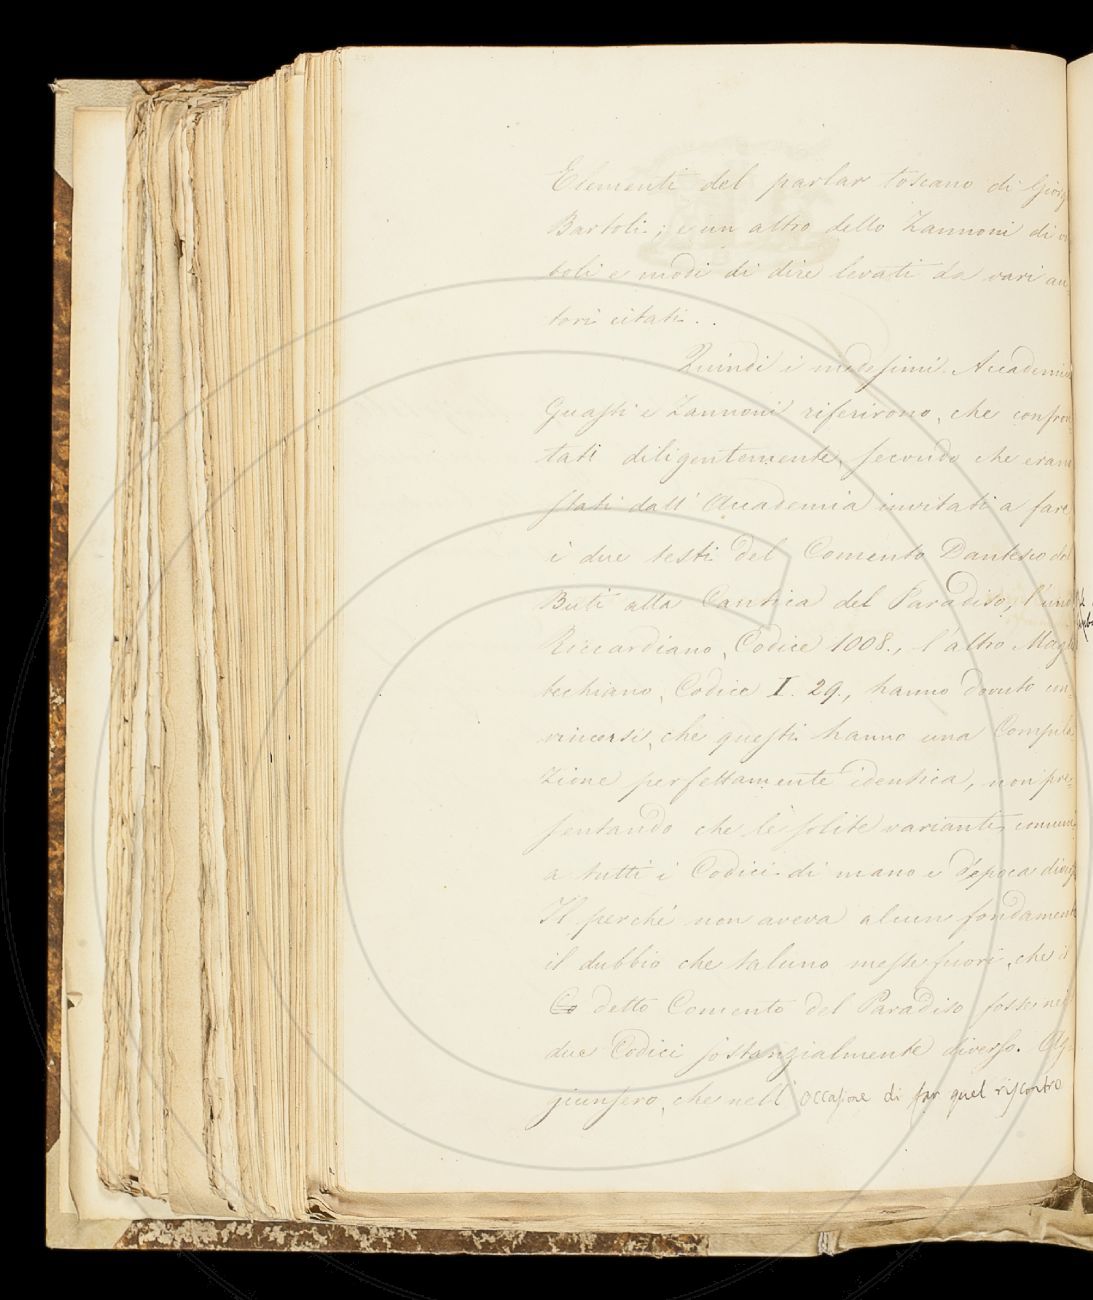 Elementi del parlar toscano di Giorg
Bartoli; e un altro dello Zannoni di vo
boli e modi di dire levati da vari au-
tori citati..
Quindi i medesimi Accademici
Guasti e Zannoni riferirono, che confron
tati diligentemente, secondo che erano
stati dall'Accademia invitati a fare
i due testi del Comento Dantesco del
Buti alla Cantica del Paradiso, l'uno
Riccardiano, Codice 1008., l'altro Maglia
bechiano, Codice I. 29., hanno dovuto con-
vincersi, che questi hanno una Compila
zione perfettamente identica, non pre-
sentando che le solite varianti comuni
a tutti i Codici di mano e d'epoca divers
Il perché non aveva alcun fondamento
il dubbio che taluno messe fuori, che il
Co detto Comento del Paradiso fosse nei
due Codici sostanzialmente diverso. Ag-
giunsero, che nell'occasione di far quel riscontro